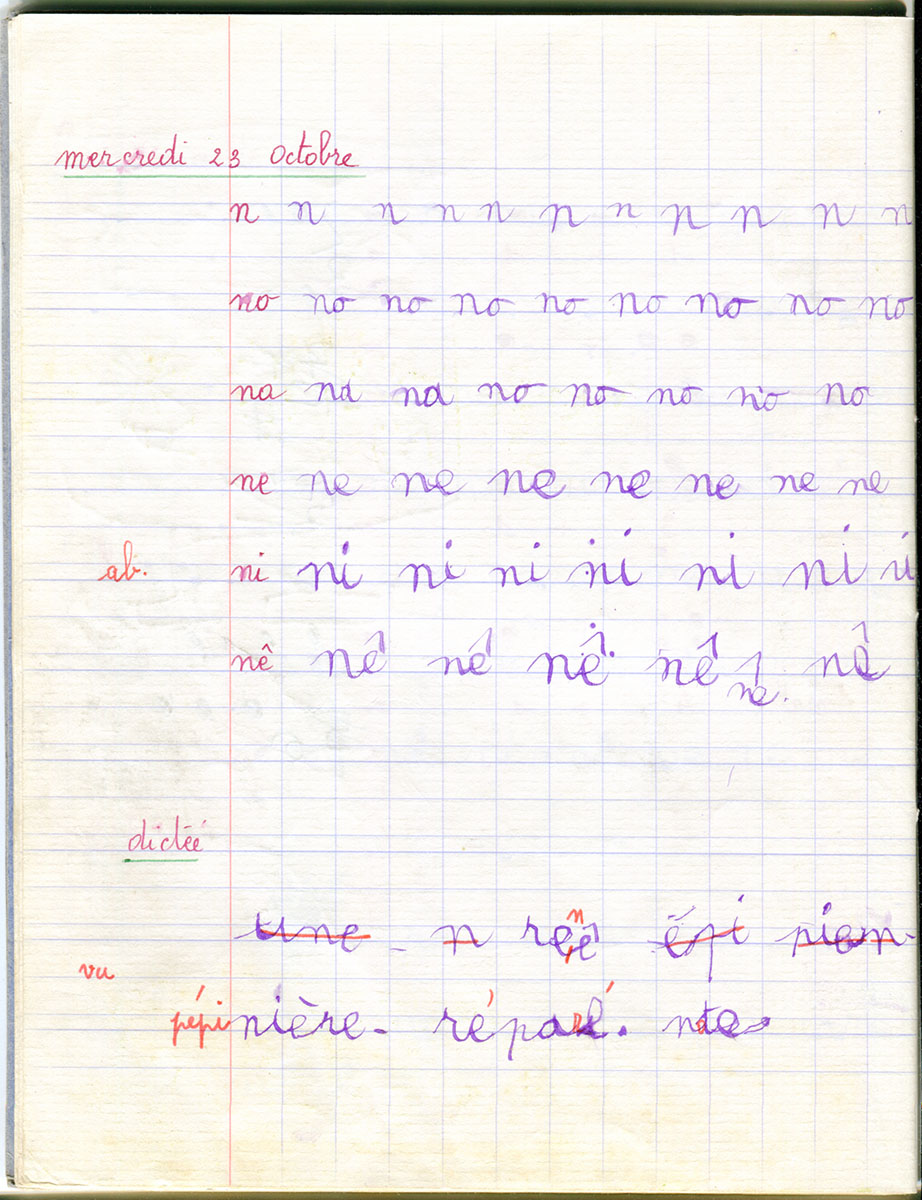 mercredi 23 Octobre
n n n n n n n n n n n
no no no no no no no no no
na na na no no no no no
ne ne ne ne ne ne ne ne
ab. ni ni ni ni ni ni ni
nê nê né nê nê ne. nê
dictée
une - n renê épi
vu
pépinière - réparé. note